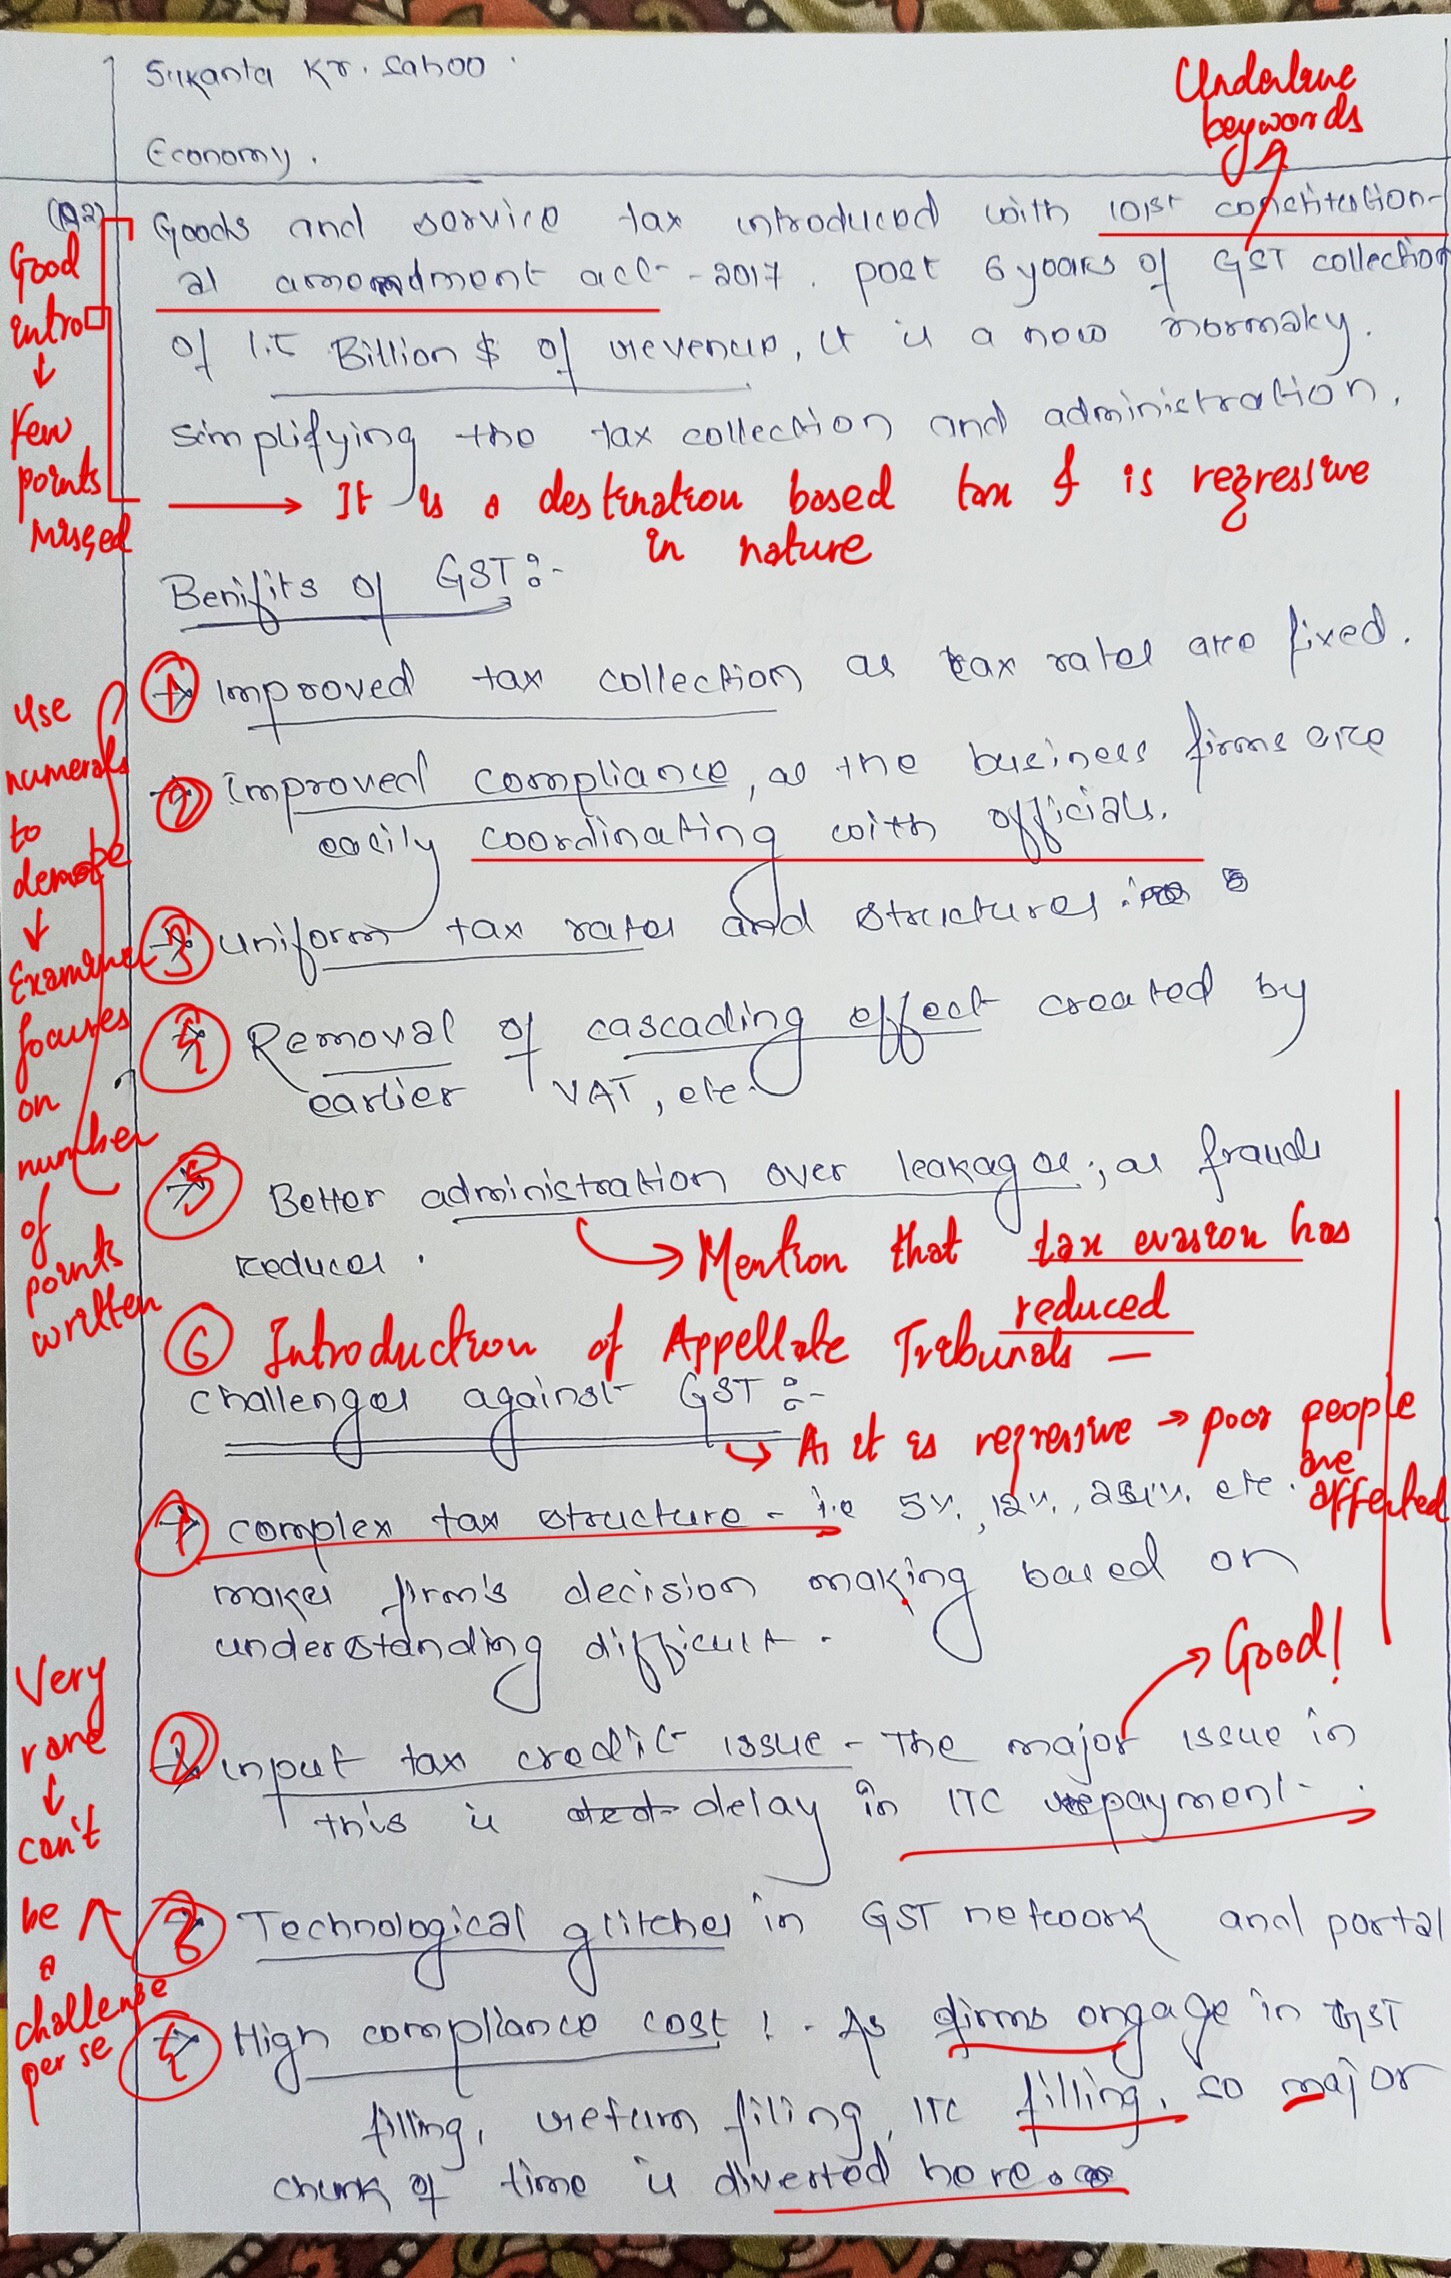 Sukanta Kr. Sahoo.
Underline
keywords
Economy.
(Q2)
Goods and service tax introduced with 101st constitution-
al amendment act - 2017. post 6 years of GST collection
of 1.5 Billion $ of revenue, it is a new normaky.
simplifying the tax collection and administration.
Good
intro
↓
Few
points
missed
→ It is a destination based tax & is regressive
in nature
Benifits of GST:-
① Improved tax collection as tax rates are fixed.
② Improved compliance, as the business firms are
easily coordinating with officials.
③ uniform tax rates and structures
④ Removal of cascading effect created by
earlier VAT, etc.
⑤ Better administration over leakages, as frauds
reduces.
→ Mention that tax evasion has
reduced
Use
numerals
to
demote
↓
Examiner
focuses
on
number
of
points
written
⑥ Introduction of Appellate Tribunals -
challenges against GST:-
→ As it is regressive → poor people
are
affected
① complex tax structure - i.e 5%, 12%, 28%, etc.
makes firm's decision making based on
understanding difficult.
→ Good!
② input tax credit issue - The major issue in
this is delay in ITC repayment.
③ Technological glitches in GST network and portal
Very
rare
↓
can't
be
a
challenge
per se
④ High compliance cost! - As firms engage in GST
filling, return filing, ITC filling, so major
chunk of time is diverted here.